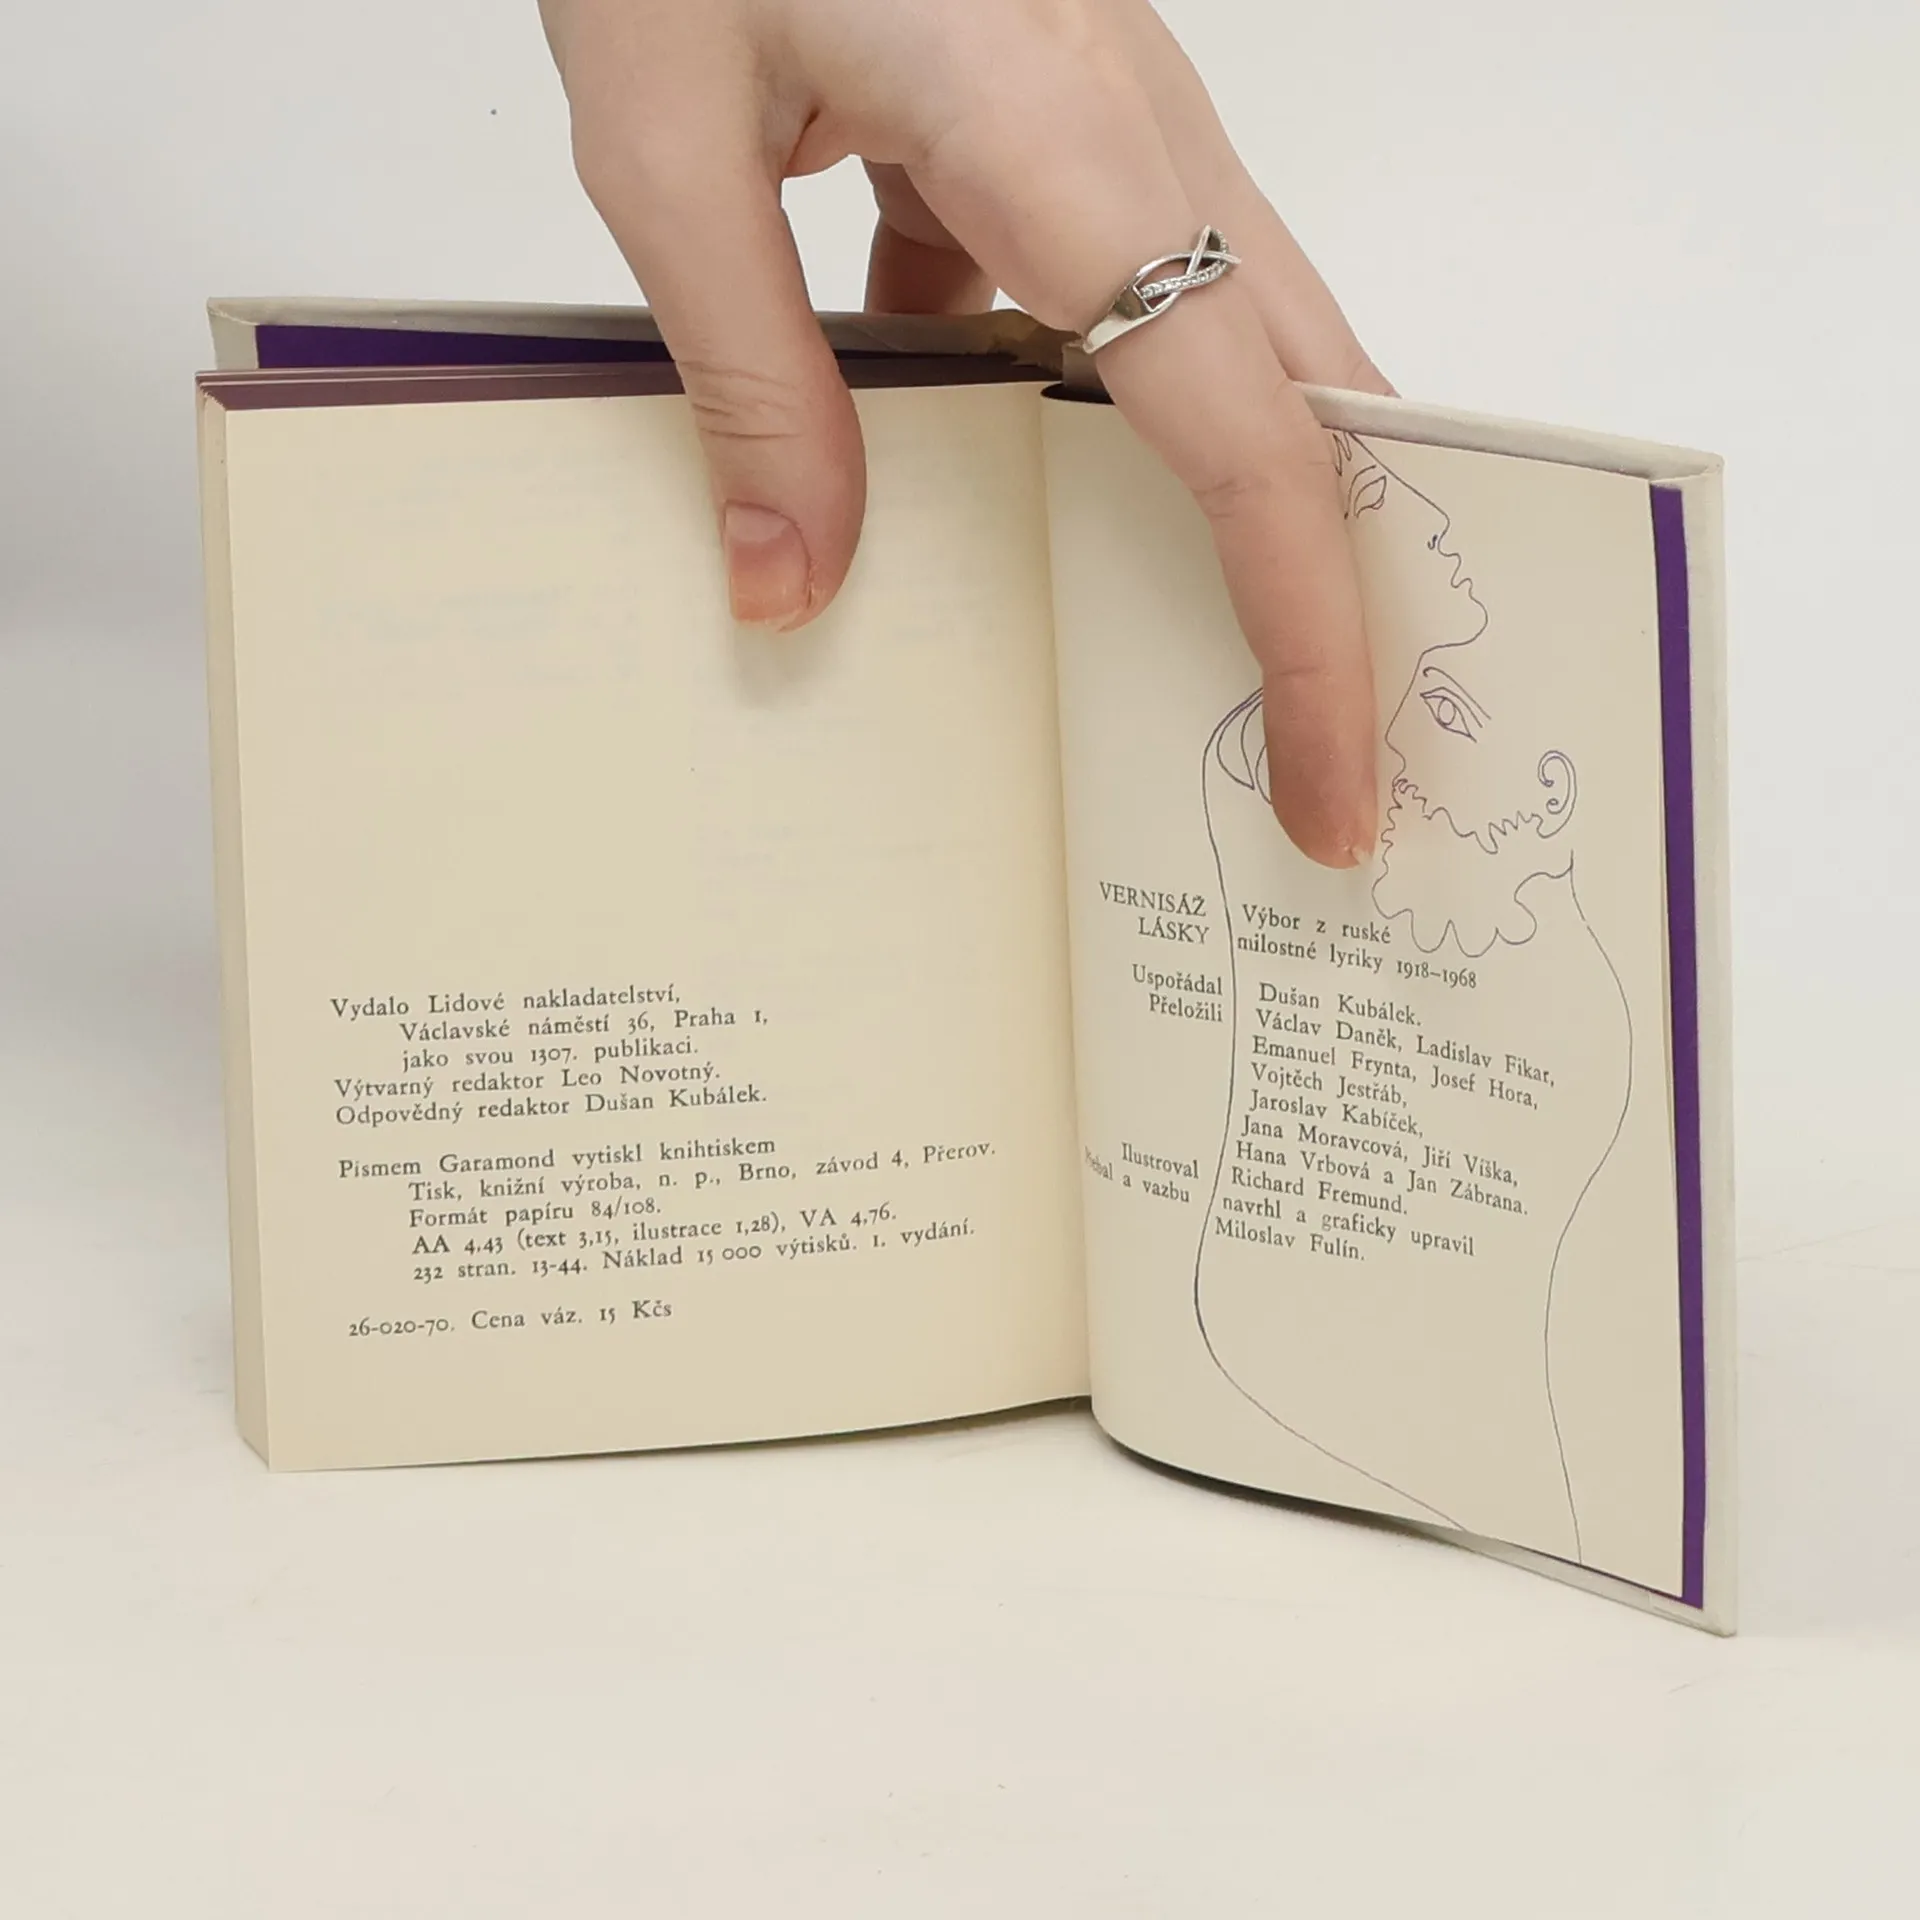 Vydalo Lidové nakladatelství,
Václavské náměstí 36, Praha 1,
jako svou 1307. publikaci.
Výtvarný redaktor Leo Novotný.
Odpovědný redaktor Dušan Kubálek.
Písmem Garamond vytiskl knihtiskem
Tisk, knižní výroba, n. p., Brno, závod 4, Přerov.
Formát papíru 84/108.
AA 4,43 (text 3,15, ilustrace 1,28), VA 4,76.
232 stran. 13-44. Náklad 15 000 výtisků. 1. vydání.
26-020-70. Cena váz. 15 Kčs
VERNISÁŽ Výbor z ruské
LÁSKY milostné lyriky 1918–1968
Uspořádal Dušan Kubálek.
Přeložili Václav Daněk, Ladislav Fikar,
Emanuel Frynta, Josef Hora,
Vojtěch Jestřáb,
Jaroslav Kabíček,
Jana Moravcová, Jiří Víška,
Hana Vrbová a Jan Zábrana.
Ilustroval Richard Fremund.
a vazbu navrhl a graficky upravil
Miloslav Fulín.